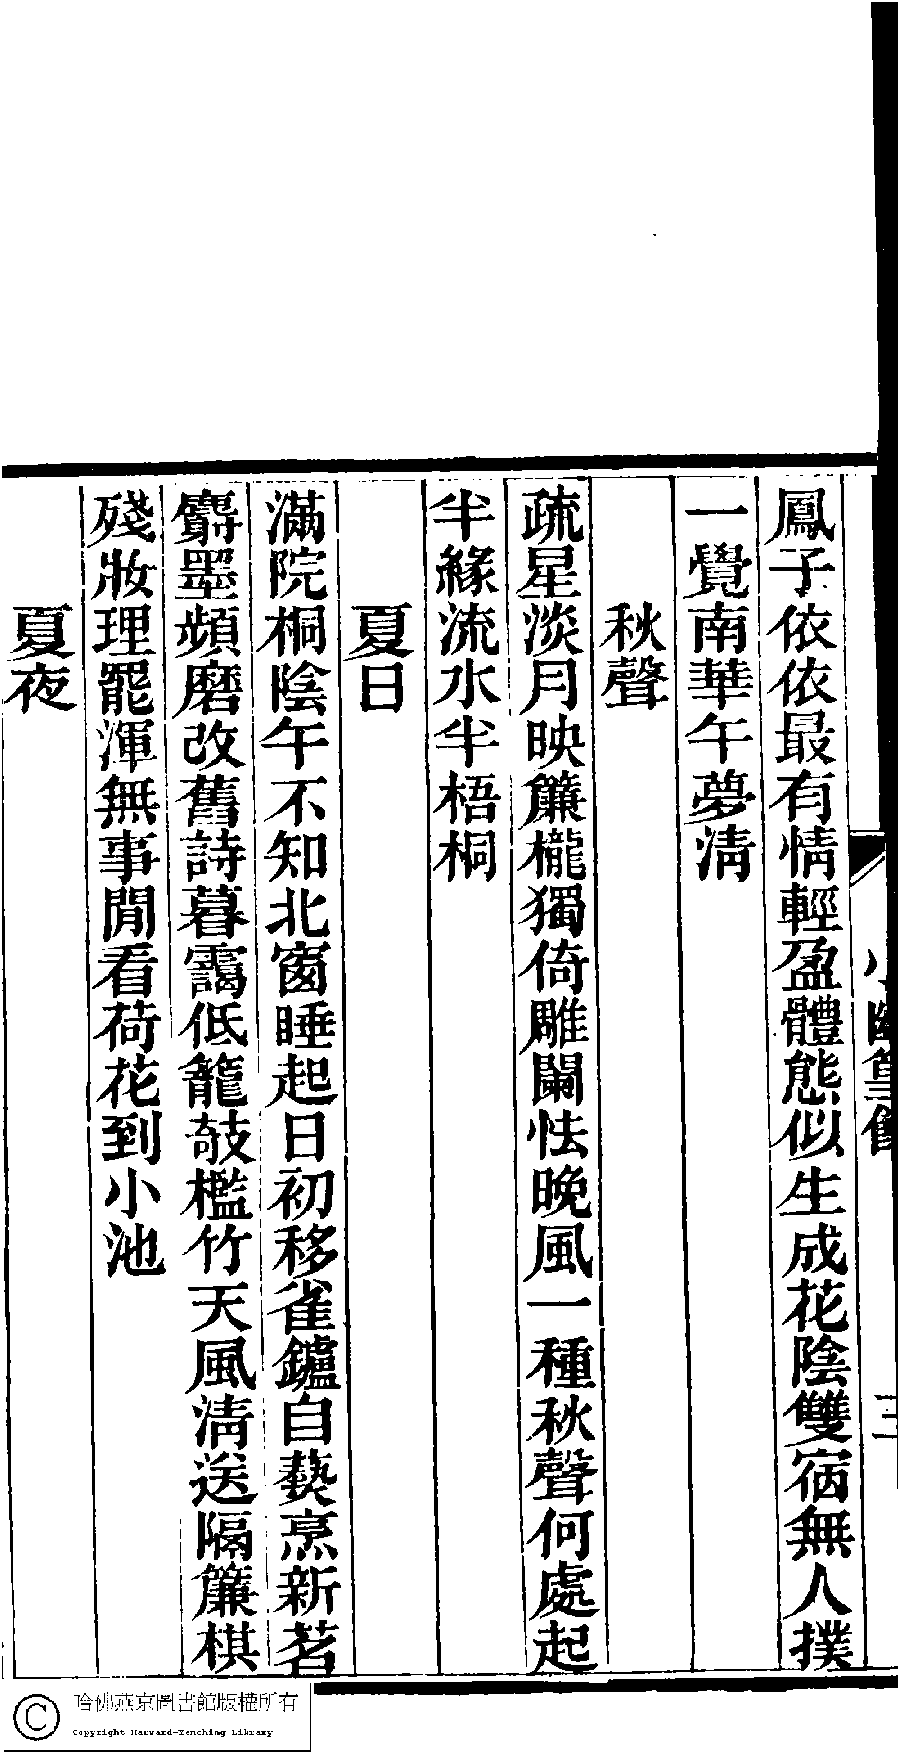 鳳子依依最有情輕盈體態似生成花陰雙宿無人撲
一覺南華午夢清
秋聲
疏星淡月映簾櫳獨倚雕闌怯晚風一種秋聲何處起
半緣流水半梧桐
夏日
滿院桐陰午不知北窗睡起日初移雀鑪自爇烹新茗
麝墨頻磨改舊詩暮靄低籠敧檻竹天風清送隔簾棋
殘妝理罷渾無事閒看荷花到小池
夏夜
哈佛燕京圖書館版權所有
Copyright Harvard-Yenching Library